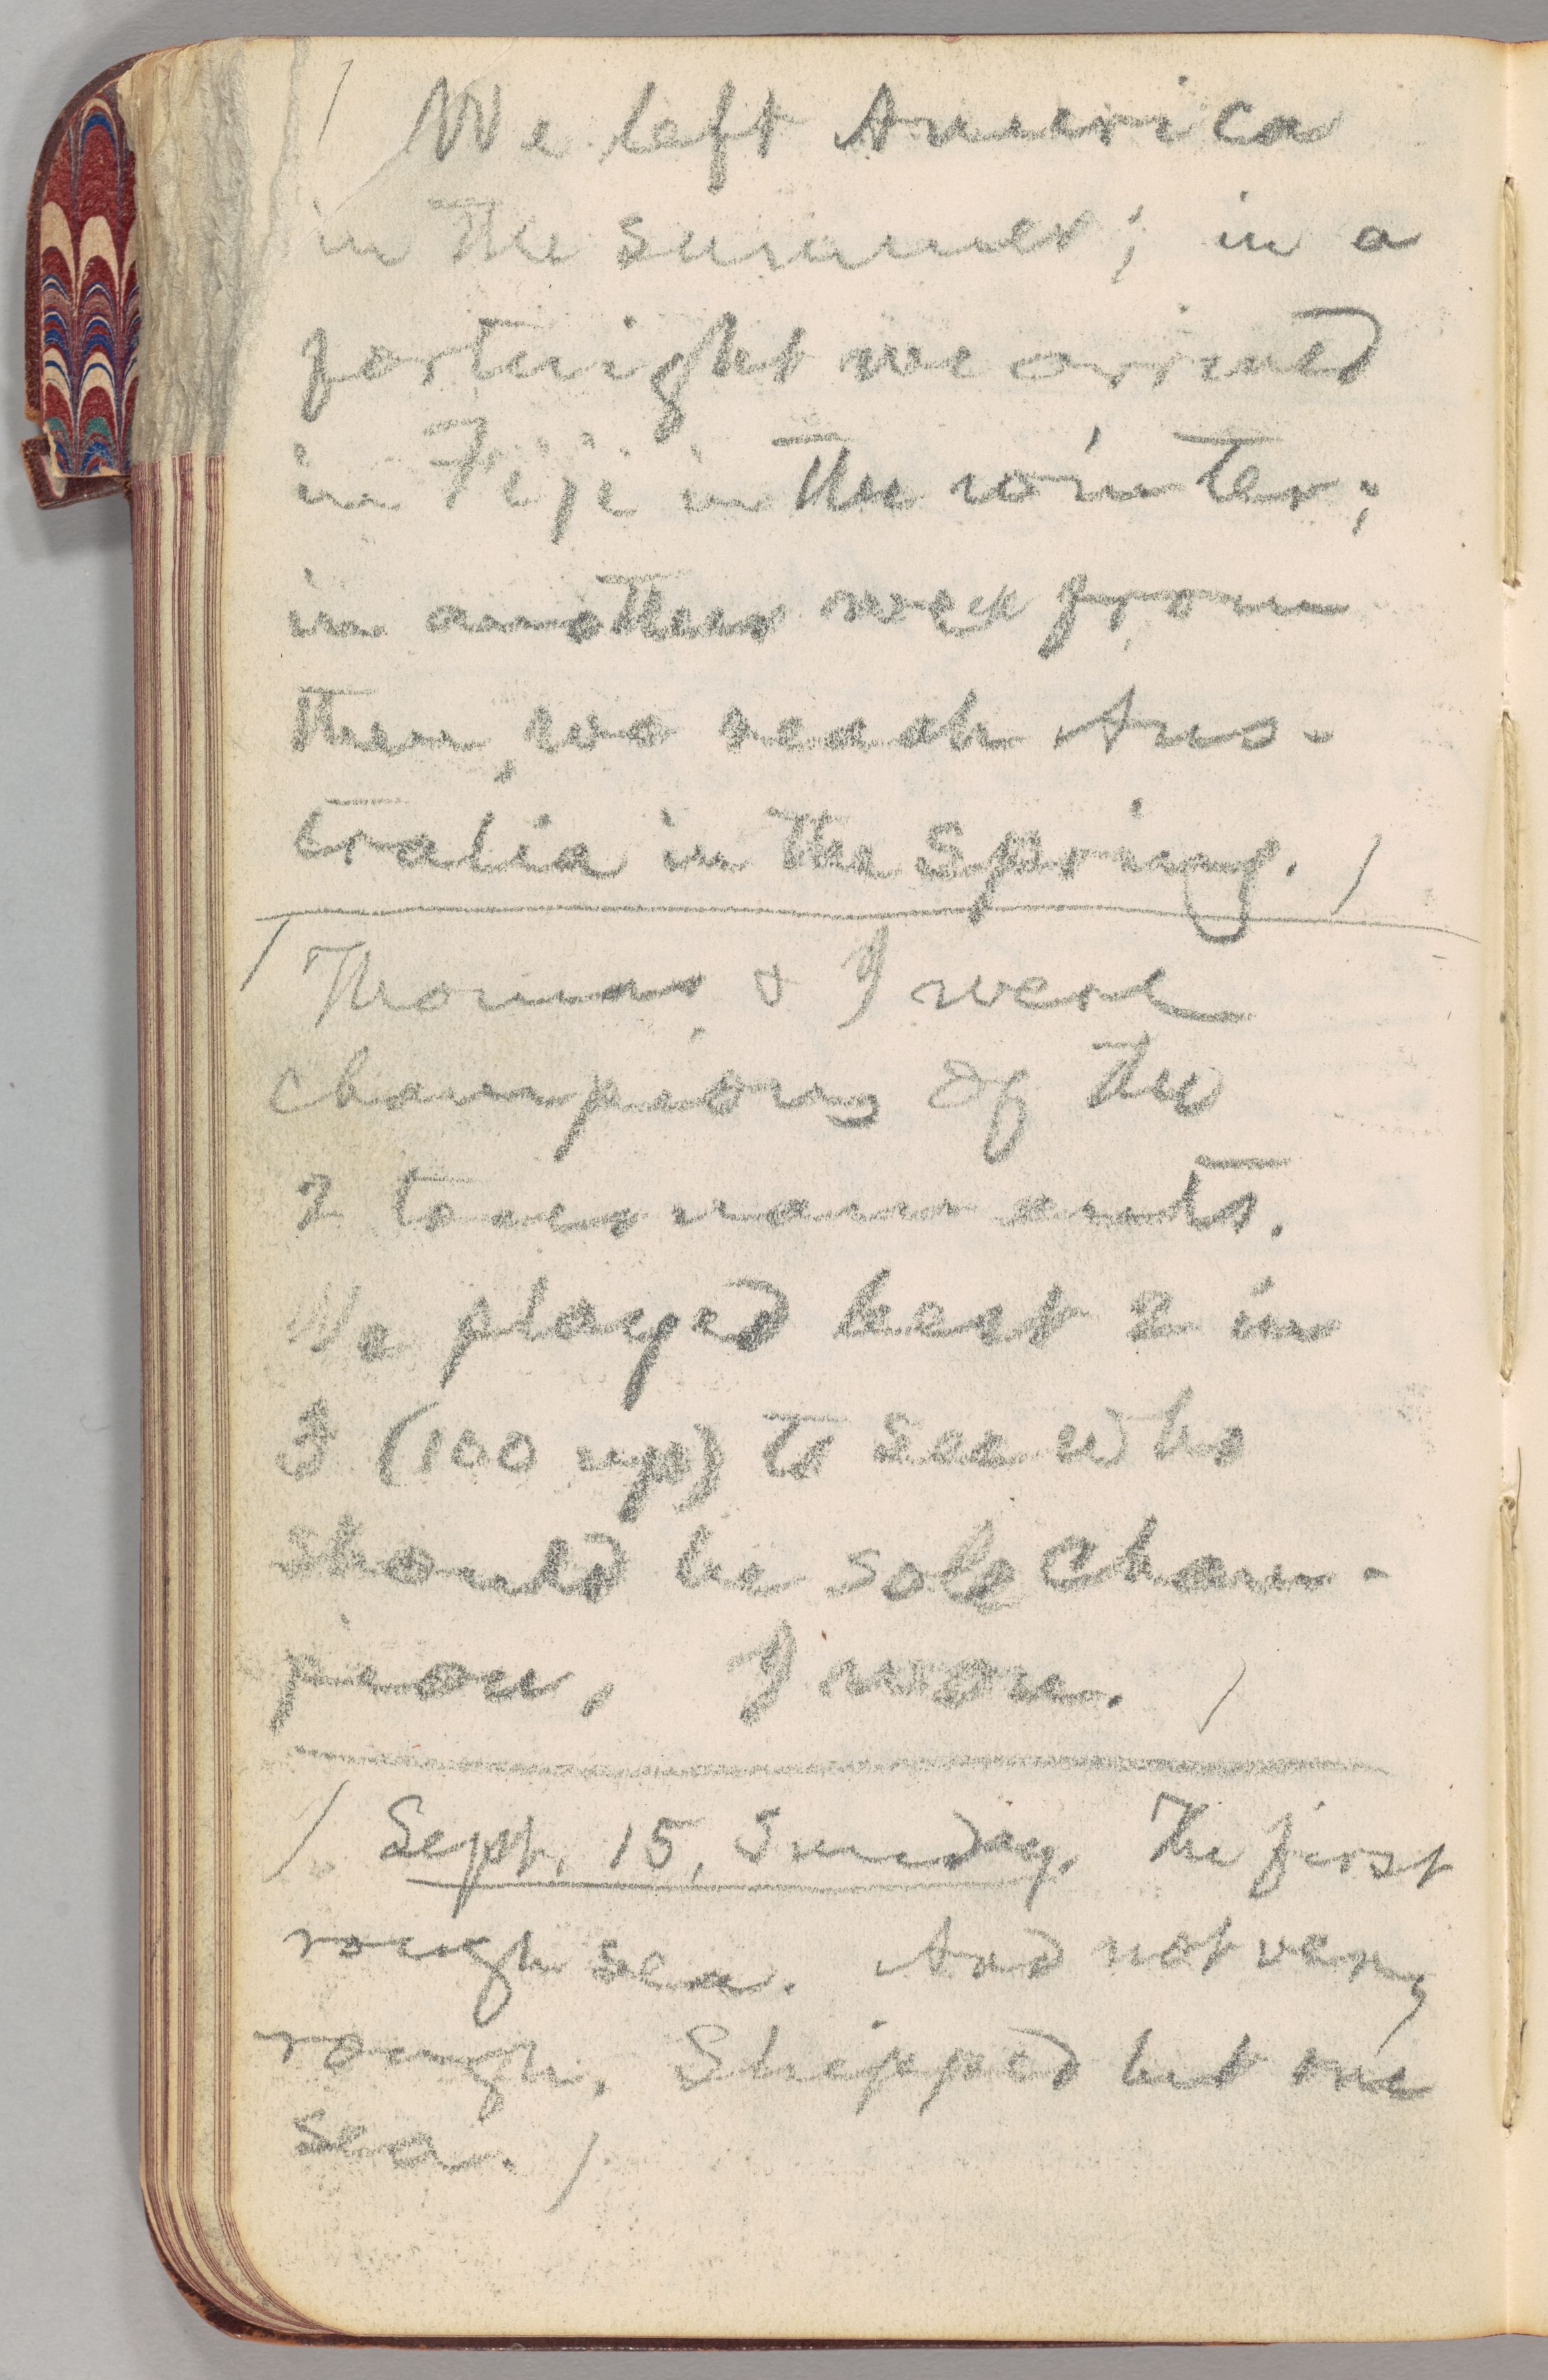 / We left America
in the summer; in a
fortnight we arrived
in Fiji in the winter;
in another week from
then, we reach Aus-
tralia in the Spring. /
/ Thomas & I were
champions of the
2 tournaments.
We played best 2 in
3 (100 up) to see who
should be sole cham-
pion. I won. /
/ Sept. 15, Sunday. The first
rough sea. And not very
rough. Shipped but one
sea. /